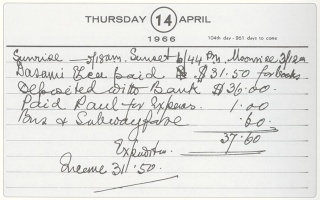 THURSDAY 14 APRIL
1966
104th day - 261 days to come
Sunrise — 5/18am. Sunset 6/44 Pm. Moonrise 3/12a
Dasami Eca paid $31.50 for books
Deposited with Bank $36.00
Paid Paul for Expens. 1.00
Bus & Subwayfare .60
37.60
Expenditure
Income 31.50.